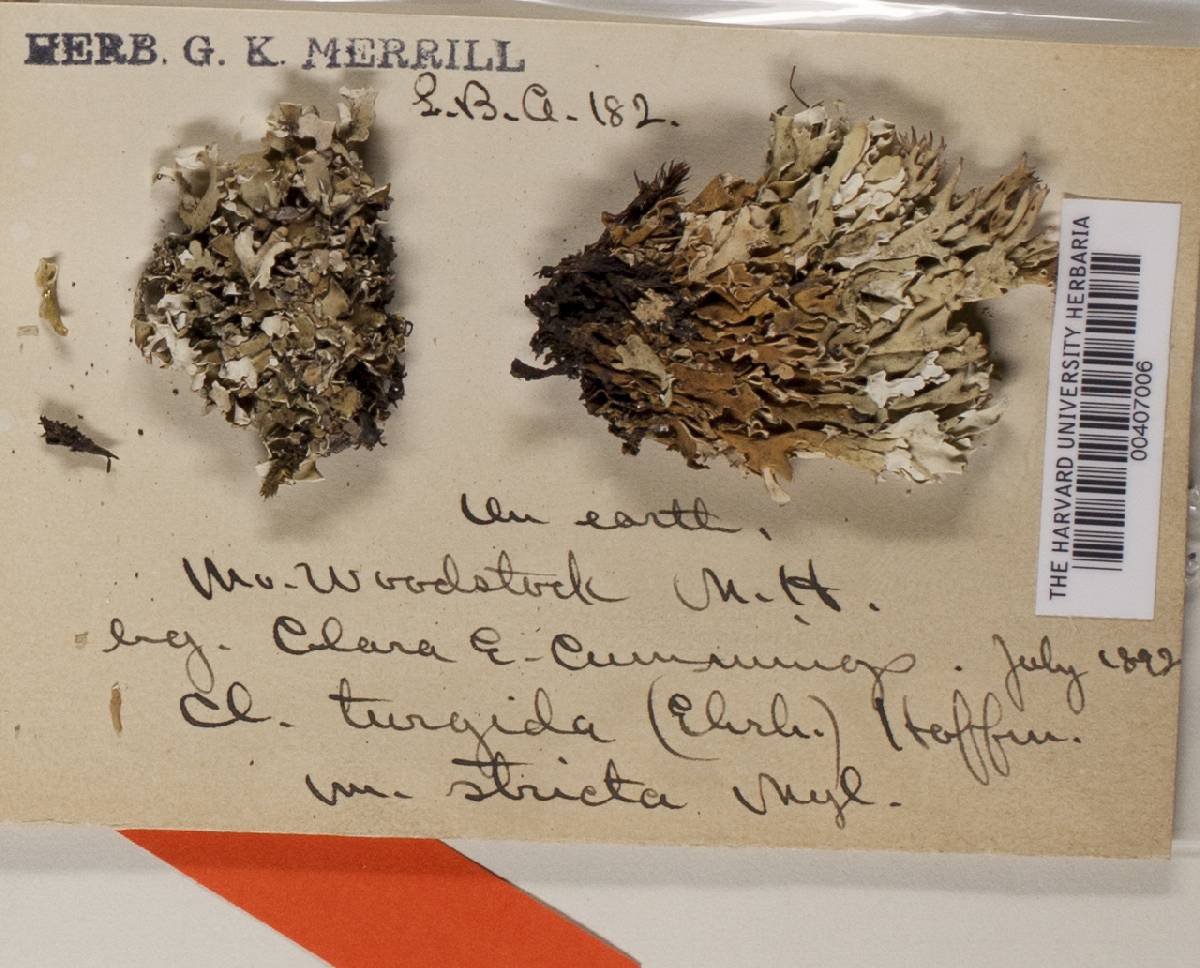 HERB. G. K. MERRILL
L.B.A. 182.
On earth,
Mo. Woodstock N.H.
Leg. Clara E. Cummings. July 1892
Cl. turgida (Ehrh.) Hoffm.
m. stricta Nyl.
THE HARVARD UNIVERSITY HERBARIA
00407006